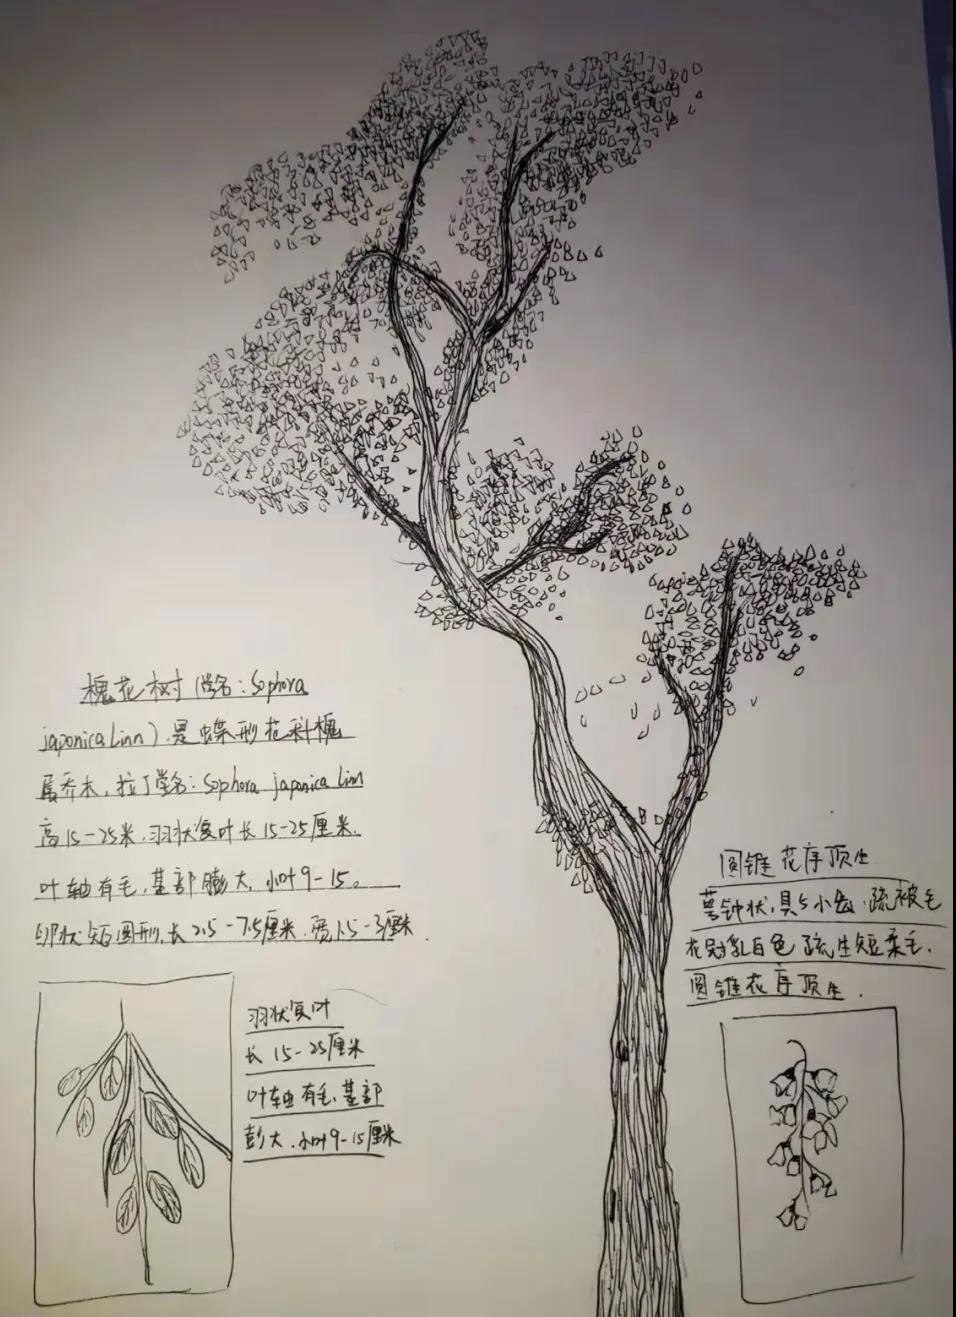 槐花树(学名:Sophora
japonica Linn)是蝶形花科槐
属乔木,拉丁学名:Sophora japonica Linn
高15-25米,羽状复叶长15-25厘米.
叶轴有毛,基部膨大,小叶9-15。
卵状短圆形,长2.5-7.5厘米.宽1.5-3厘米.
羽状复叶
长15-25厘米
叶轴有毛,基部
彭大.小叶9-15厘米
圆锥花序顶生
萼钟状,具5小齿.疏被毛
花冠乳白色疏生短柔毛.
圆锥花序顶生.